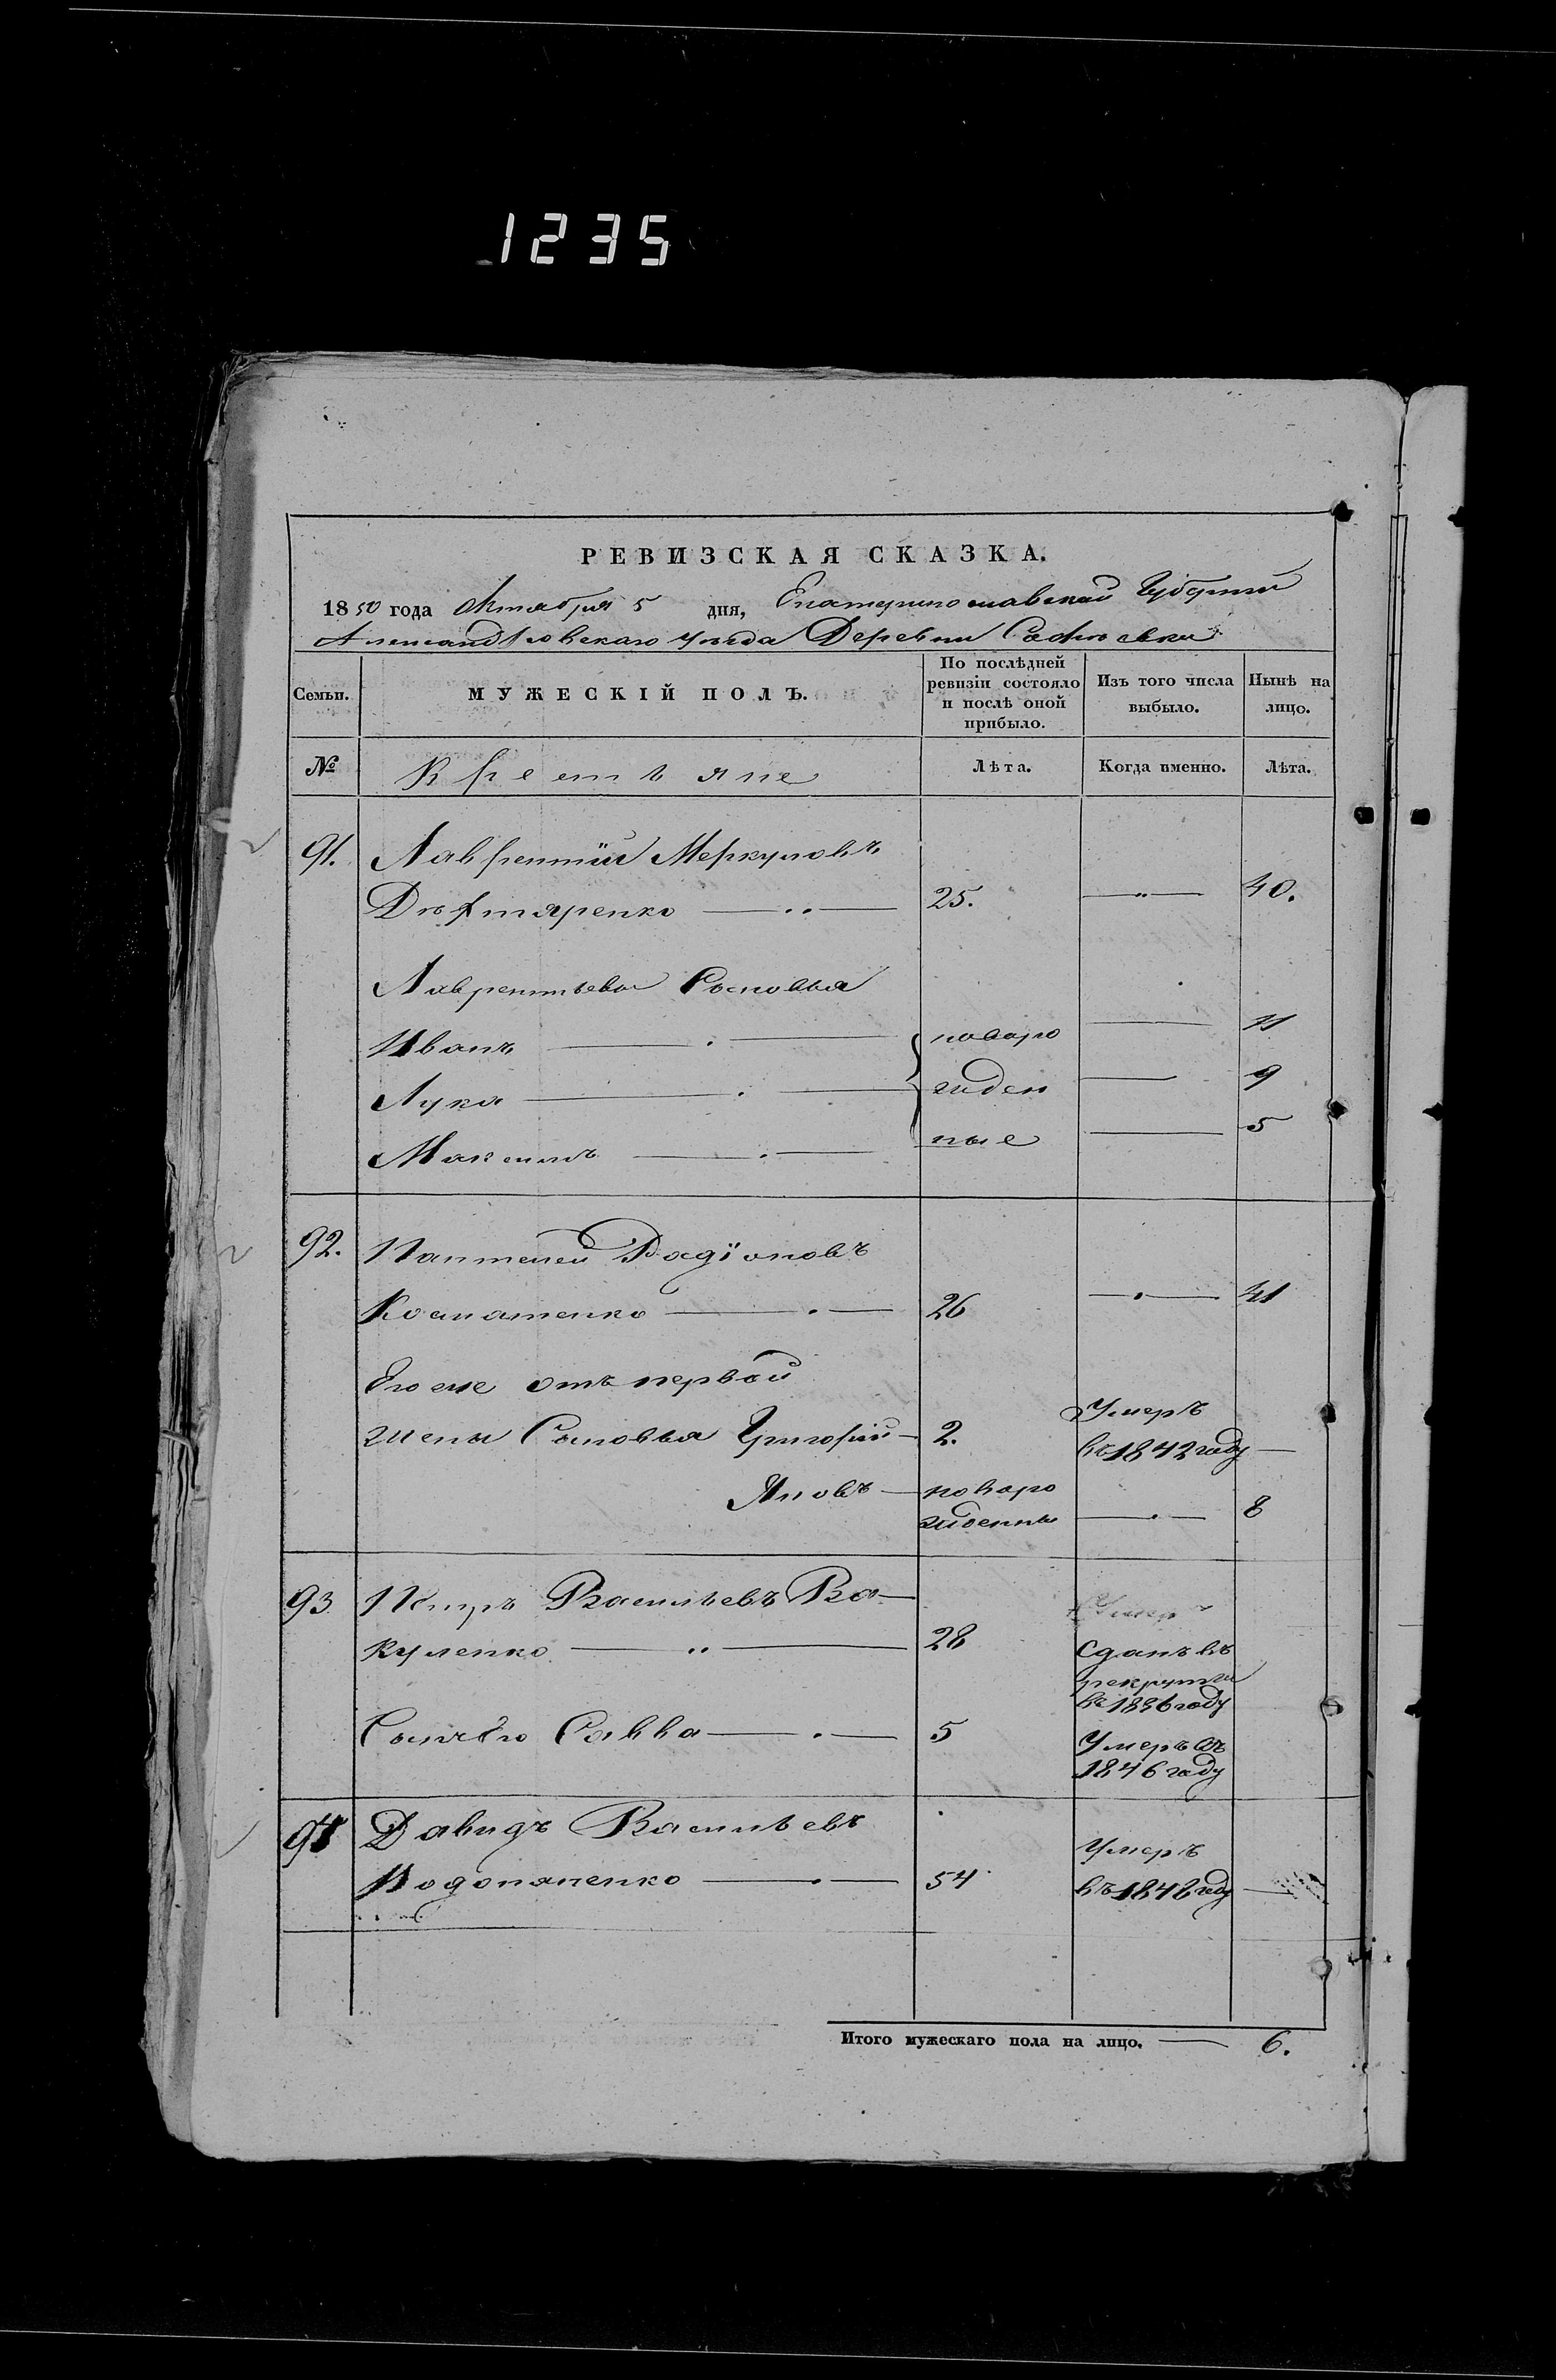 1235
РЕВИЗСКАЯ СКАЗКА.
1850 года Октября 5 дня, Екатеринославской Губерніи
Александровскаго уѣзда Деревни Софіевки
Семьи. МУЖЕСКІЙ ПОЛЪ. По послѣдней ревизіи состояло и послѣ оной прибыло. Изъ того числа выбыло. Нынѣ на лицо.
№ Крестьяне Лѣта. Когда именно. Лѣта.
91. Лаврентій Меркуловъ
Дѣхтяренко 25. — 40.
Лаврентьевы Сыновья
Иванъ новоро — 11
Лука жден — 9
Максимъ ные — 5
92. Пантелей Радіоновъ
26 — 41
Его же отъ первой
жены Сыновья Григорій 2. Умеръ въ 1842 году —
Яковъ новорожденны — 8
93. Петръ Васильевъ Ва-
куленко 28 Сданъ въ рекруты въ 1836 году
Сынъ Его Савва 5 Умеръ въ 1846 году
94 Давидъ Васильевъ
Водопяненко 54 Умеръ въ 1848 году —
Итого мужескаго пола на лицо. — 6.